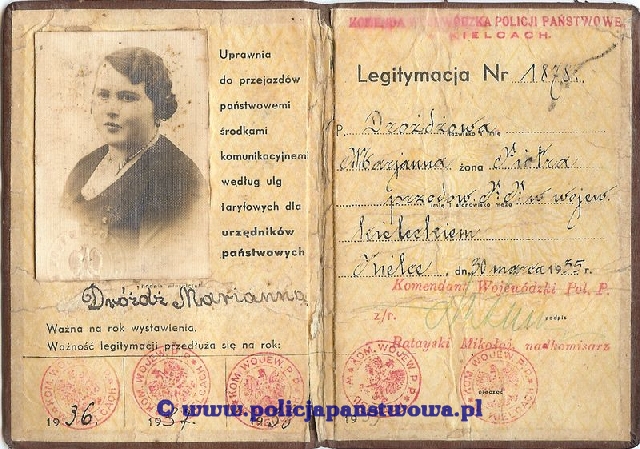 Uprawnia
do przejazdów
państwowemi
środkami
komunikacyjnemi
według ulg
taryfowych dla
urzędników
państwowych
Dróżdż Marianna
Ważna na rok wystawienia.
Ważność legitymacji przedłuża się na rok:
1936
1937
KOMENDA WOJEWÓDZKA POLICJI PAŃSTWOWEJ
KIELCACH.
Legitymacja Nr 1878
P. Dróżdżowa
Marjanna żona Piotra
przodow. P.P. w wojew
kieleckiem
Kielce, dn. 30 marca 1935 r.
Komendant Wojewódzki Pol. P.
z/r.
podpis
Ratayski Mikołaj nadkomisarz
pieczęć
© www.policjapanstwowa.pl